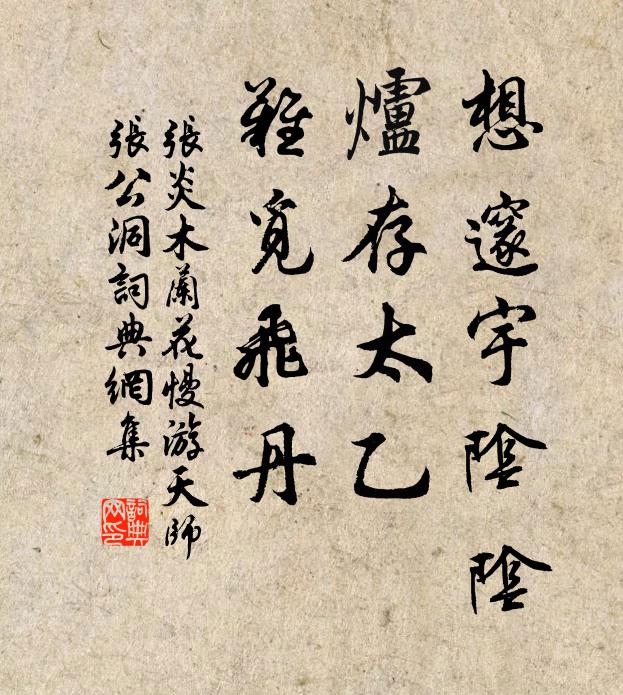 想邃宇陰陰
爐存太乙
難覓飛丹
張炎木蘭花慢游天師
張公洞詞典網集
詞典網印